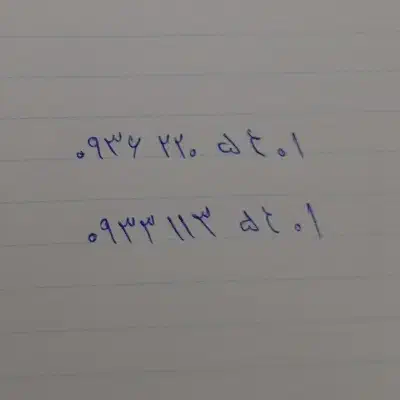 ۰۹۳۶ ۲۲۰ ۵۴۰۱
۰۹۳۳ ۱۱۳ ۵۴۰۱